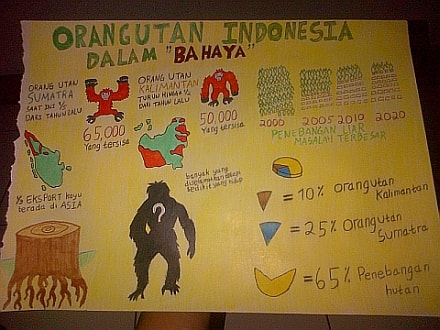 ORANGUTAN INDONESIA
DALAM "BAHAYA"
ORANG UTAN
SUMATRA
SAAT INI 1/5
DARI TAHUN LALU
65,000
Yang tersisa
ORANG UTAN
KALIMANTAN
TURUN HINGGA
DARI TAHUN LALU
50,000
Yang tersisa
2000 2005 2010 2020
PENEBANGAN LIAR
MASALAH TERBESAR
EKSPORT kayu
berada di ASIA
banyak yang
diselamatkan
sedikit yang hidup
?
= 10% Orangutan
Kalimantan
= 25% Orangutan
Sumatra
= 65% Penebangan
hutan